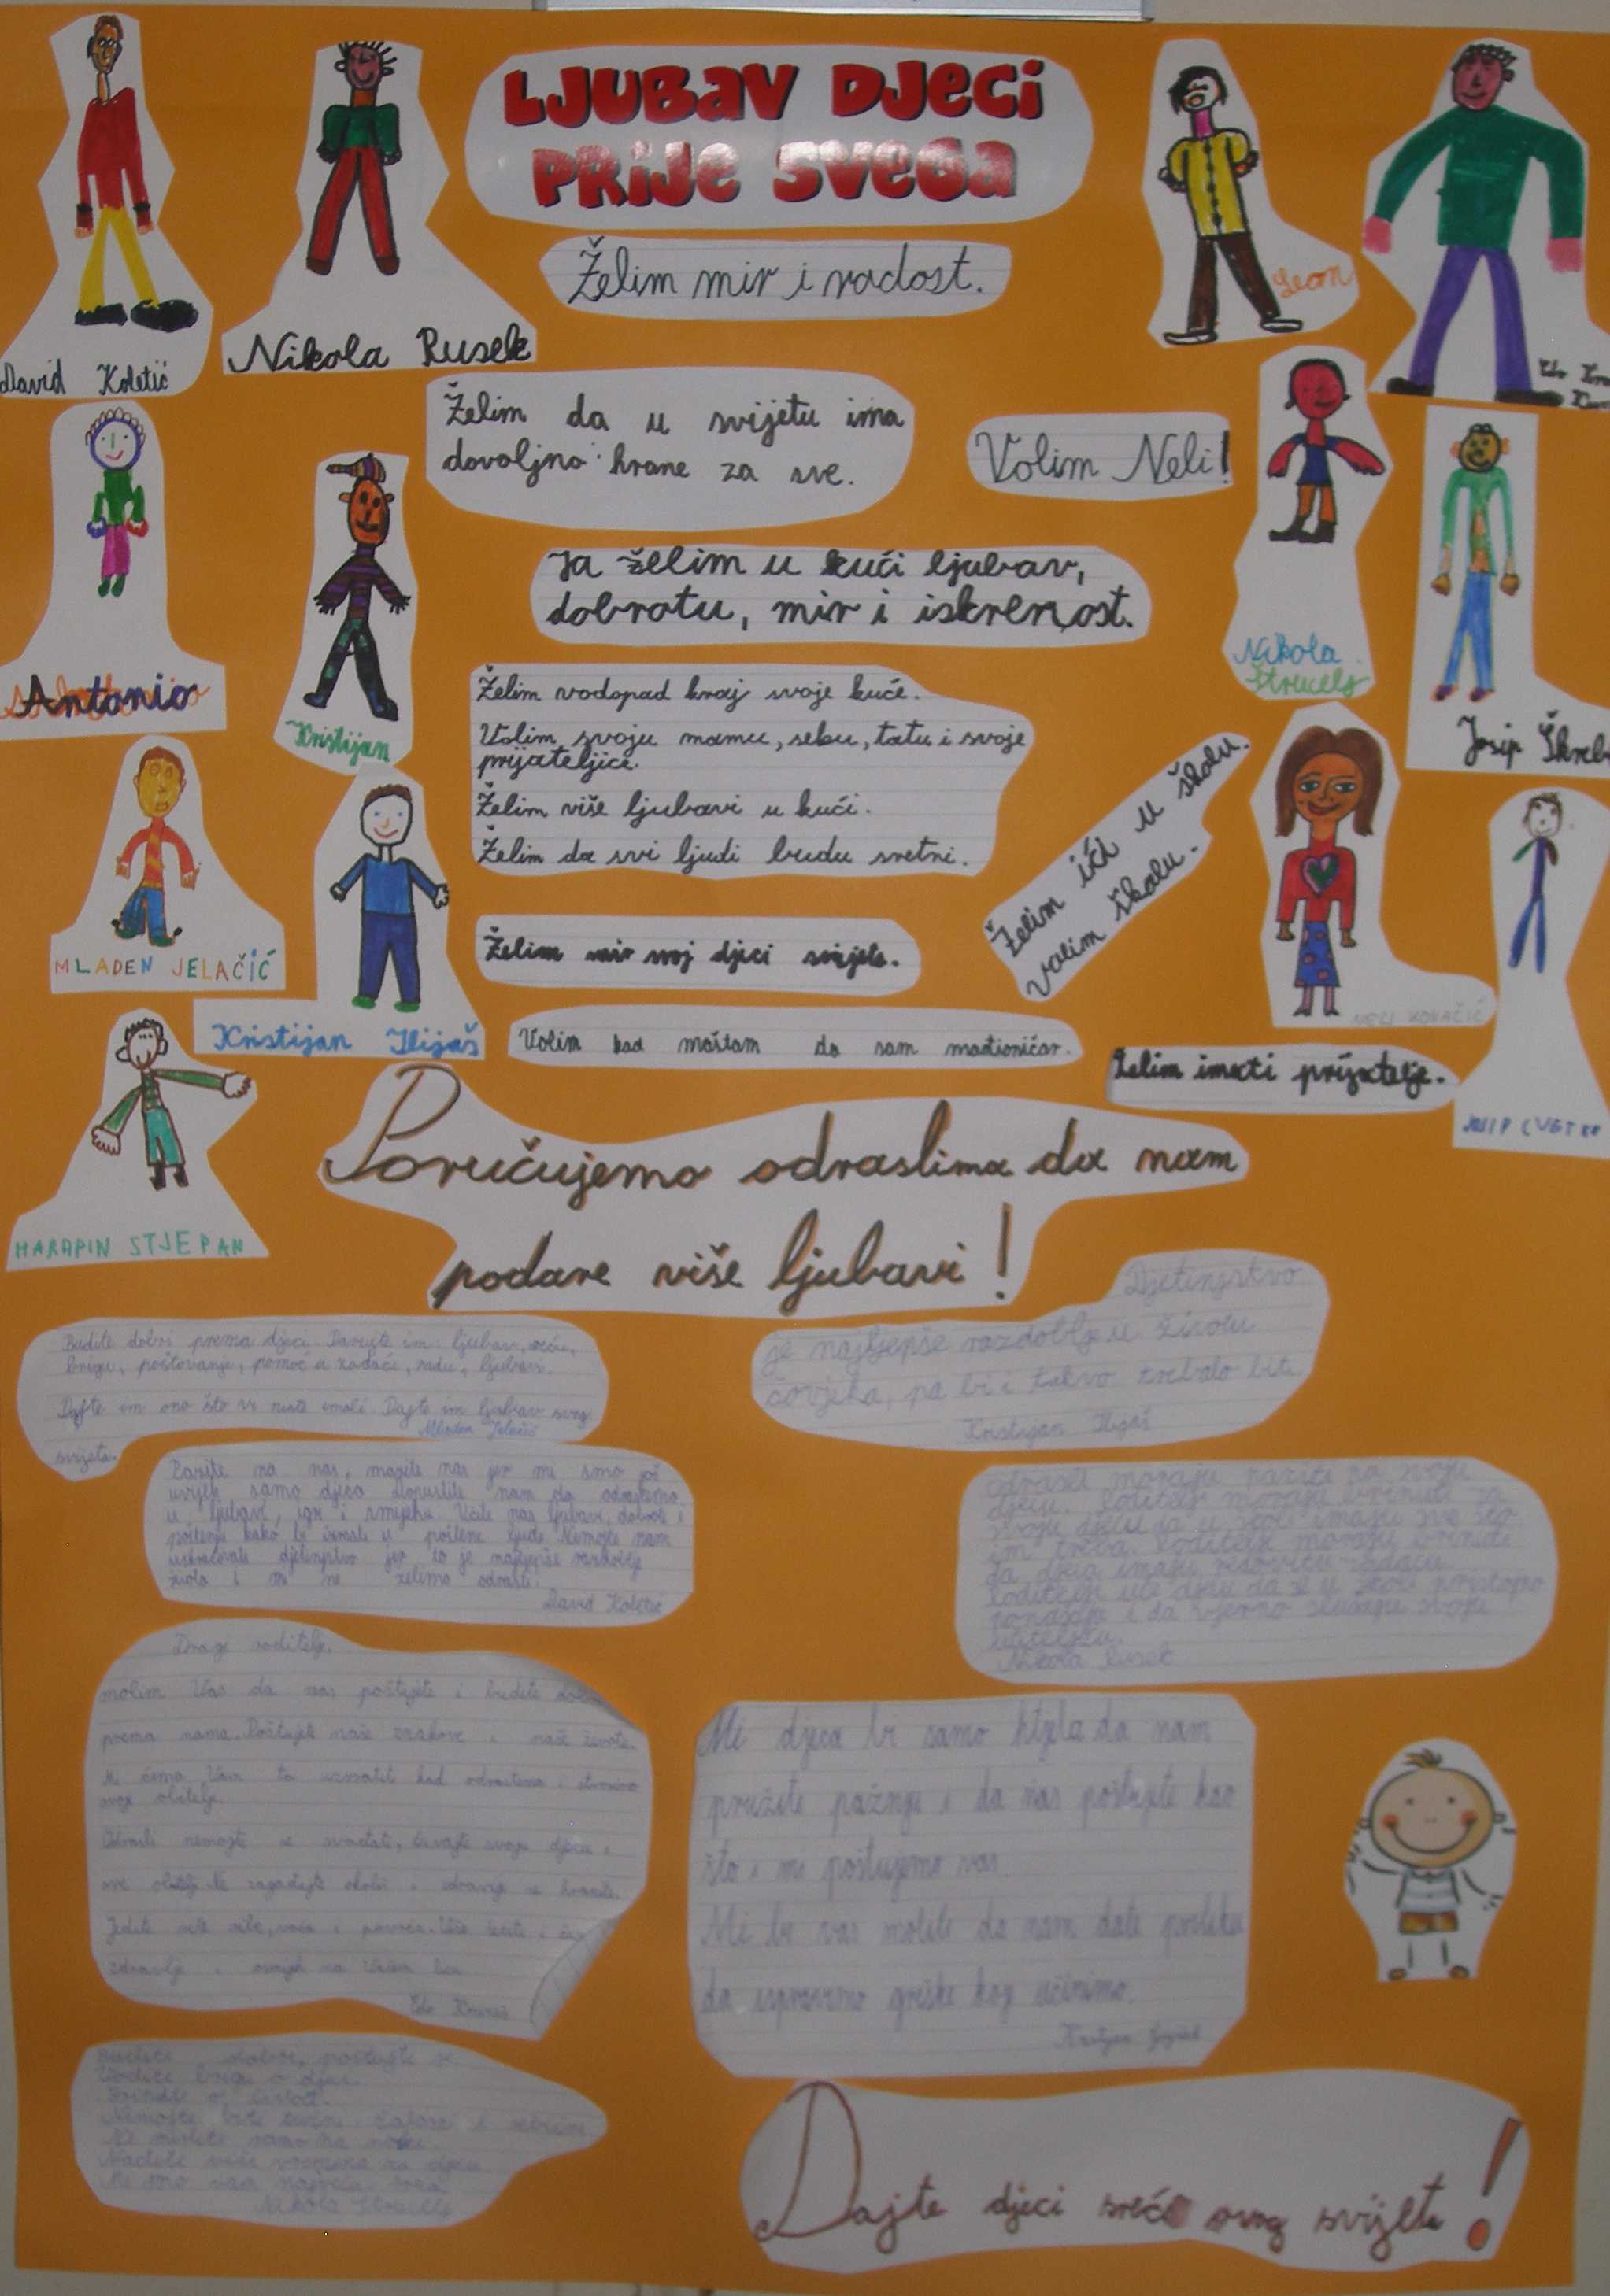 LJUBAV DJECI
PRIJE SVEGA
Želim mir i radost.
David Koletić
Nikola Rusek
Leon
Edo
Želim da u svijetu ima
dovoljno hrane za sve.
Volim Neli!
Ja želim u kući ljubav,
dobrotu, mir i iskrenost.
Antonio
Kristijan
Nikola
Štrucelj
Josip
Želim vodopad kraj svoje kuće.
Volim svoju mamu, sebu, tatu i svoje
prijateljice.
Želim više ljubavi u kući.
Želim da svi ljudi budu sretni.
Želim ići u školu.
Volim školu.
MLADEN JELAČIĆ
Želim mir svoj djeci svijeta.
Kristijan Ilijaš
Volim kad maštam da sam mađioničar.
NELI KOVAČIĆ
Želim imati prijatelje.
JOSIP CVETKO
HARAPIN STJEPAN
Poručujemo odraslima da nam
podare više ljubavi!
Budite dobri prema djeci. Darujte im: ljubav, sreću,
brigu, poštovanje, pomoć u zadaći, radu, ljubav.
Dajte im ono što vi niste imali. Dajte im ljubav svog
svijeta.
Mladen Jelačić
Djetinjstvo
je najljepše razdoblje u životu
čovjeka, pa bi i takvo trebalo biti.
Kristijan Ilijaš
Pazite na nas, mazite nas jer mi smo još
uvijek samo djeca. Dopustite nam da odrastemo
u ljubavi, igri i smijehu. Učite nas ljubavi, dobroti i
poštenju kako bi izrasli u poštene ljude. Nemojte nam
uskraćivati djetinjstvo jer to je najljepše razdoblje
života i mi ne želimo odrasti.
David Koletić
Odrasli moraju paziti na svoju
djecu. Roditelji moraju brinuti za
svoju djecu da u školi imaju sve što
im treba. Roditelji moraju brinuti
da djeca imaju zadaću.
Roditelji uče djecu da se u školi pristojno
ponašaju i da vjerno slušaju svoju
učiteljicu.
Nikola Rusek
Dragi roditelji,
molim Vas da nas poštujete i budite dobri
prema nama. Poštujte naše i naše živote.
Mi ćemo Vam to uzvratiti kad odrastemo i stvorimo
svoje obitelji.
Odrasli nemojte se svađati, čuvajte svoju djecu i
sve obitelji. Ne zagađujte okoliš i zdravije se hranite.
Jedite više ribe, voća i povrća.
zdravlje
Edo
Mi djeca bi samo htjela da nam
pružite pažnju i da nas poštujete kao
što i mi poštujemo vas.
Mi bi vas molili da nam date priliku
da ispravimo greške koje učinimo.
Budite dobri, poštujte se.
Vodite brigu o djeci.
Nemojte biti
Ne mislite samo na
Nađite više vremena za djecu.
Nikola Štrucelj
Dajte djeci sreću ovog svijeta!